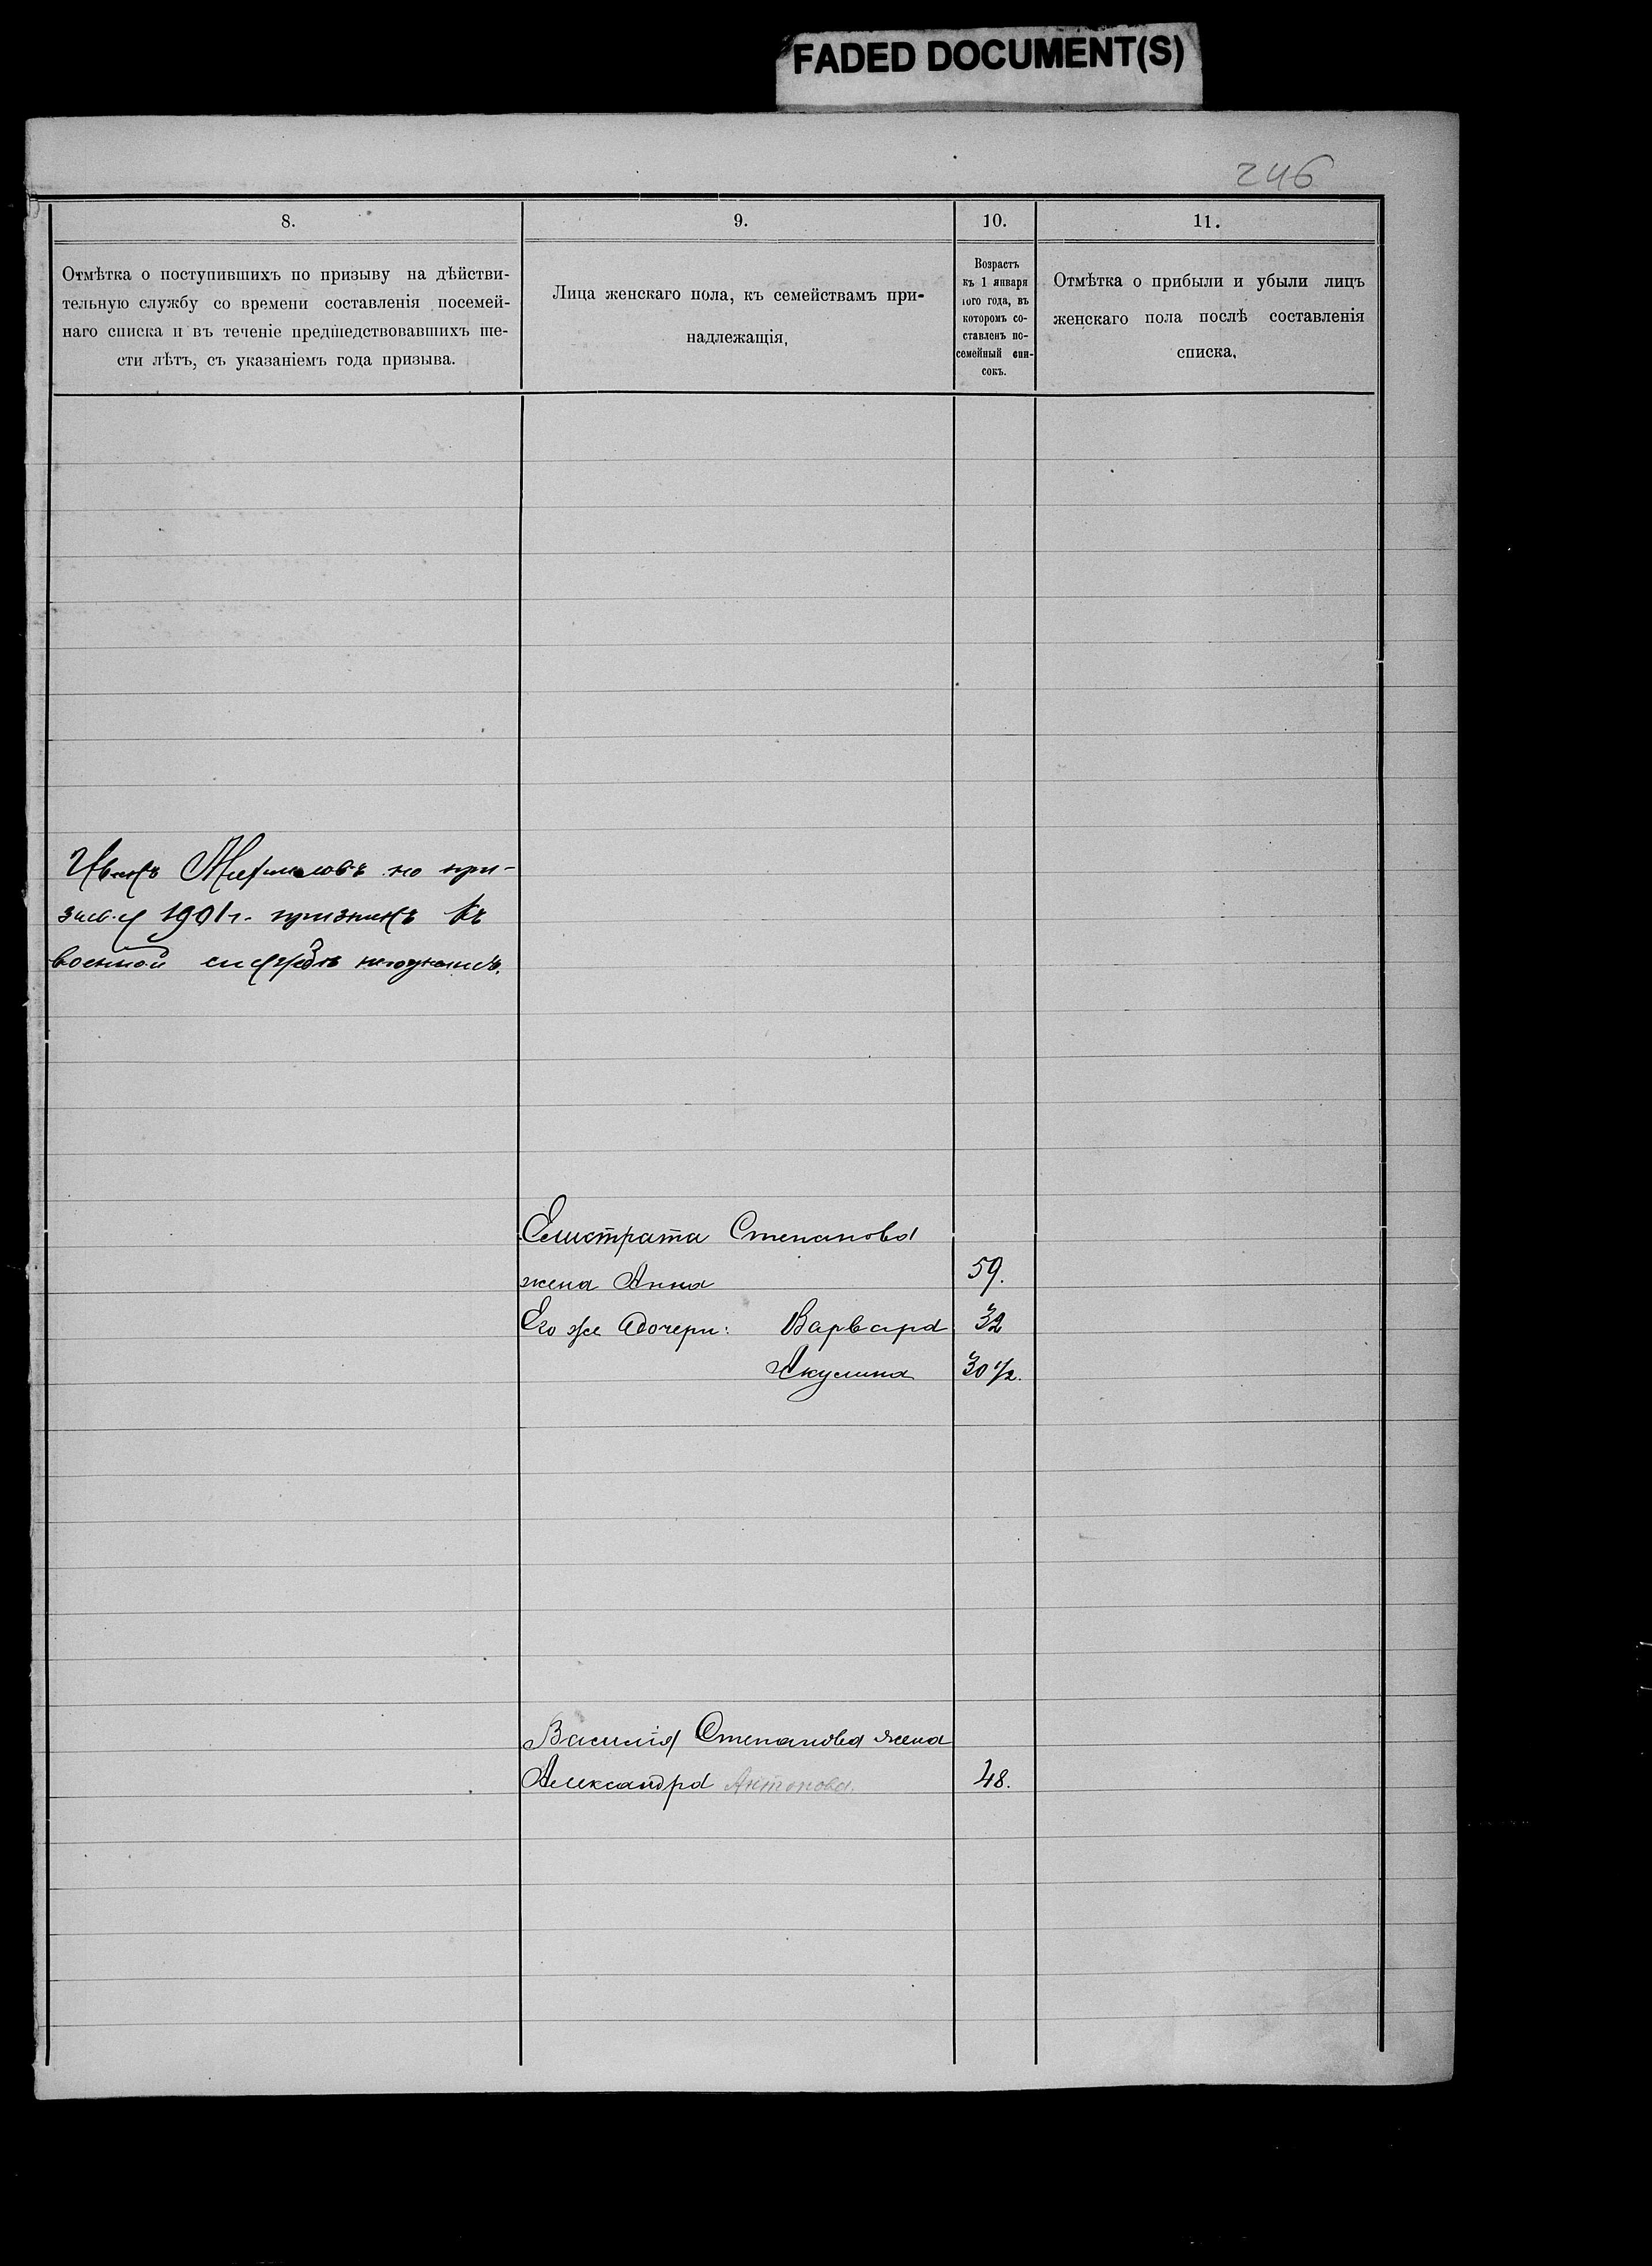 FADED DOCUMENT(S)
246
8.
9.
10.
11.
Отмѣтка о поступившихъ по призыву на дѣйстви-
тельную службу со времени составленія посемей-
наго списка и въ теченіе предшедствовавшихъ ше-
сти лѣтъ, съ указаніемъ года призыва.
Лица женскаго пола, къ семействамъ при-
надлежащія,
Возрастъ
къ 1 января
того года, въ
которомъ со-
ставленъ по-
семейный спи-
сокъ.
Отмѣтка о прибыли и убыли лицъ
женскаго пола послѣ составленія
списка.
Иванъ по при-
зыву 1901 г. признанъ къ
военной службѣ негоднымъ.
Елистрата Степанова
жена Анна 59.
Его же дочери: Варвара 32
Акулина 30 1/2.
Василія Степанова жена
Александра Антонова. 48.